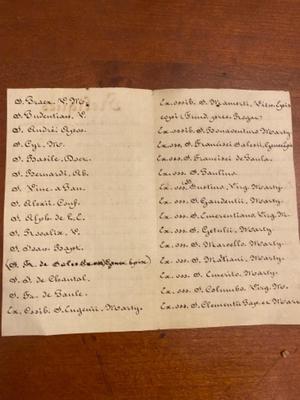 S. Prax. V. M.
S. Pudentian. V.
S. André Apos.
S. Cyr. M.
S. Basile. Doct.
S. Bernardi, Ab.
S. Vinc. a Pau.
S. Alexii. Conf.
S. Alph. de L.
S. Rosaliæ. V.
S. Joan. Bapt.
(S. Fr. de Sales
S. J. de Chantal.
S. Fr. de Paule.
Ex. Ossib. S. Eugenii, Marty.
Ex. ossib. S. Mamerti, Vien. Epis
copi
Ex. ossib. S. Bonaventura Marty
Ex. oss. S. Francisci Salesii,
Ex. oss. S. Francisci de Paula.
Ex. oss. S. Paulino
Ex. oss. S. Justina, Virg. Marty.
Ex. oss. S. Gaudentii, Marty.
Ex. oss. S. Emerentiana Virg. M.
Ex. oss. S. Getulii, Marty.
Ex. oss. S. Marcello, Marty.
Ex. oss. S. Marty.
Ex. oss. S. Emerito, Marty.
Ex. oss. S. Columba, Virg. M.
Ex. oss. S. Clementii Pap. et Mar